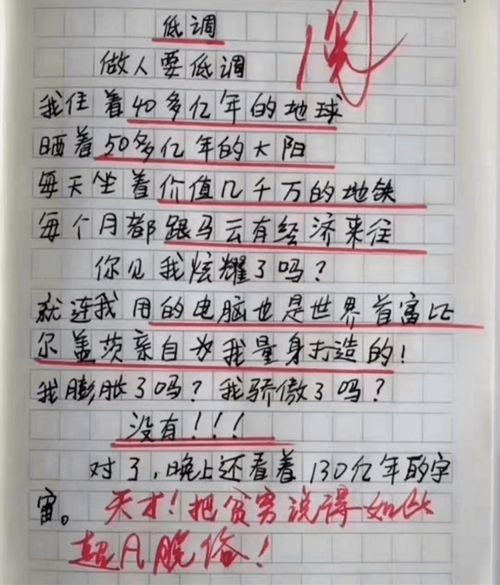 低调
做人要低调
我住着40多亿年的地球
晒着50多亿年的太阳
每天坐着价值几千万的地铁
每个月都跟马云有经济来往
你见我炫耀了吗？
就连我用的电脑也是世界首富比
尔盖茨亲自为我量身打造的！
我膨胀了吗？我骄傲了吗？
没有！！！
对了，晚上还看着130亿年的宇
宙。天才！把贫穷说得如此
超凡脱俗！